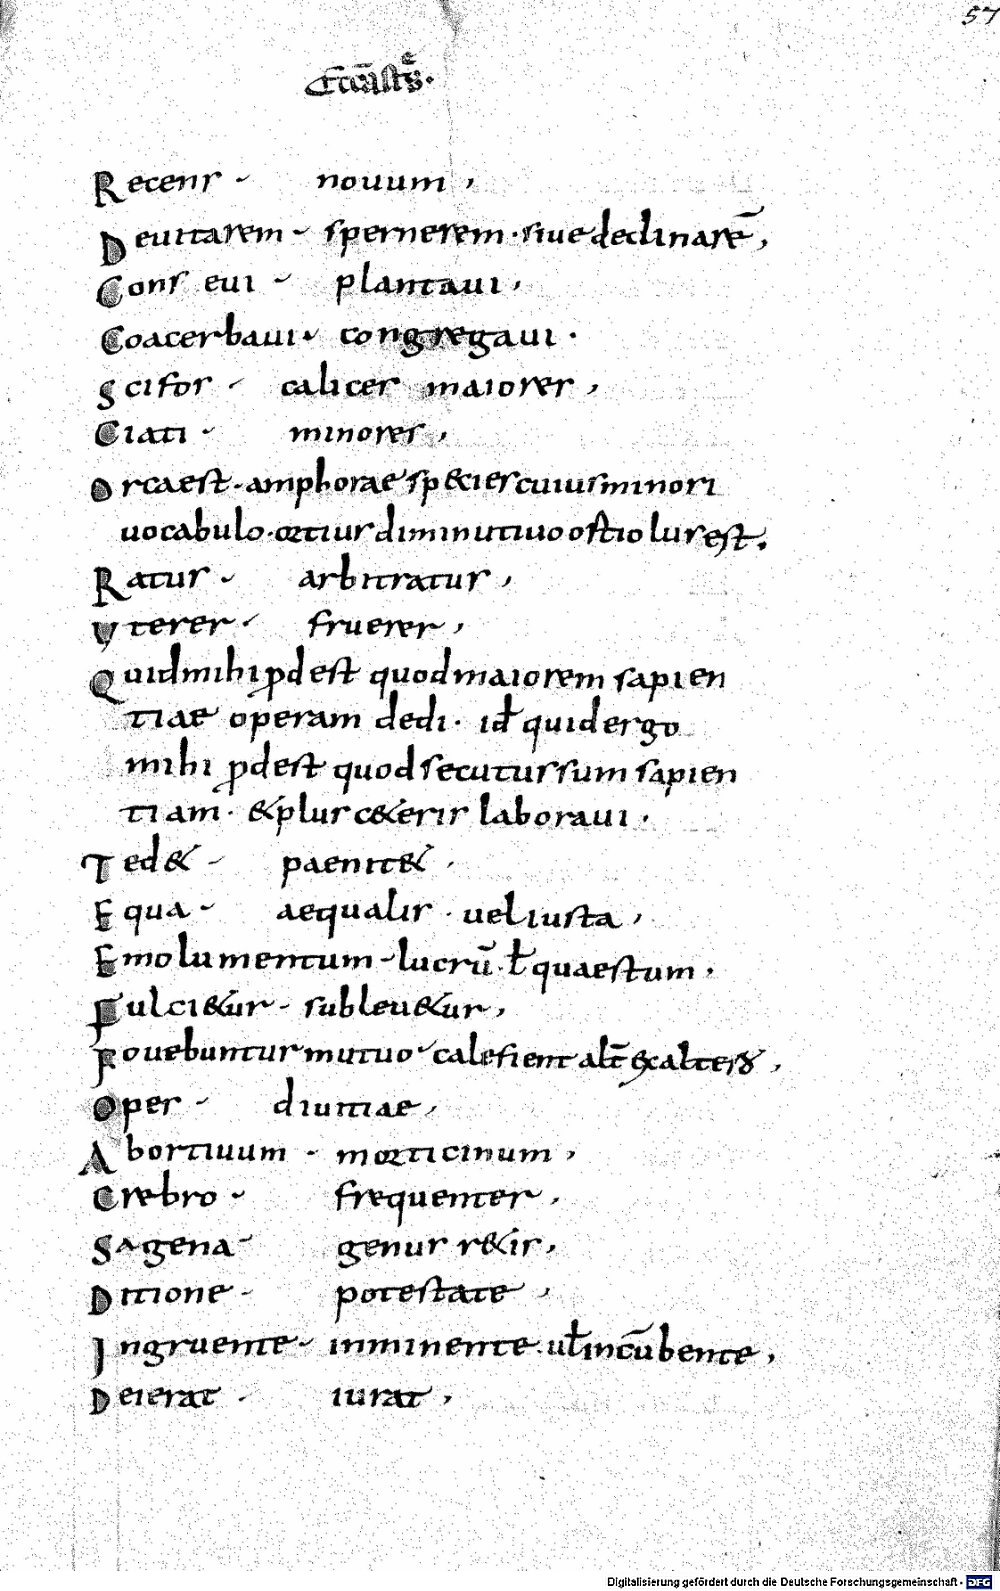 57
Recens · nouum ,
Deuitarem · spernerem · siue declinarē ,
Conseui · plantaui ,
Coacerbaui · congregaui ·
Scifos · calices maiores ,
Ciati · minores ,
Orca est · amphorae species cuius minori
uocabulo · ortiur diminutiuo ostiolus est .
Ratus · arbitratus ,
Uterer · fruerer ,
Quid mihi ꝓdest quod maiorem sapien
tiae operam dedi · id̄ quid ergo
mihi ꝓdest quod secutus sum sapien
tiam · & plus c&eris laboraui ·
Ted& · paenit& ·
Equa · aequalis · uel iusta ,
Emolumentum · lucrū · ł quaestum ·
Fulci&ur · subleu&ur ,
Fouebuntur mutuo · calefient alt̄ ex alteꝝ ,
Opes · diuitiae ,
Abortiuum · morticinum ,
Crebro · frequenter ,
Sagena · genus r&is ,
Ditione · potestate ,
Ingruente · inminente · uł incūbente ,
Deierat · iurat ,
Digitalisierung gefördert durch die Deutsche Forschungsgemeinschaft - DFG